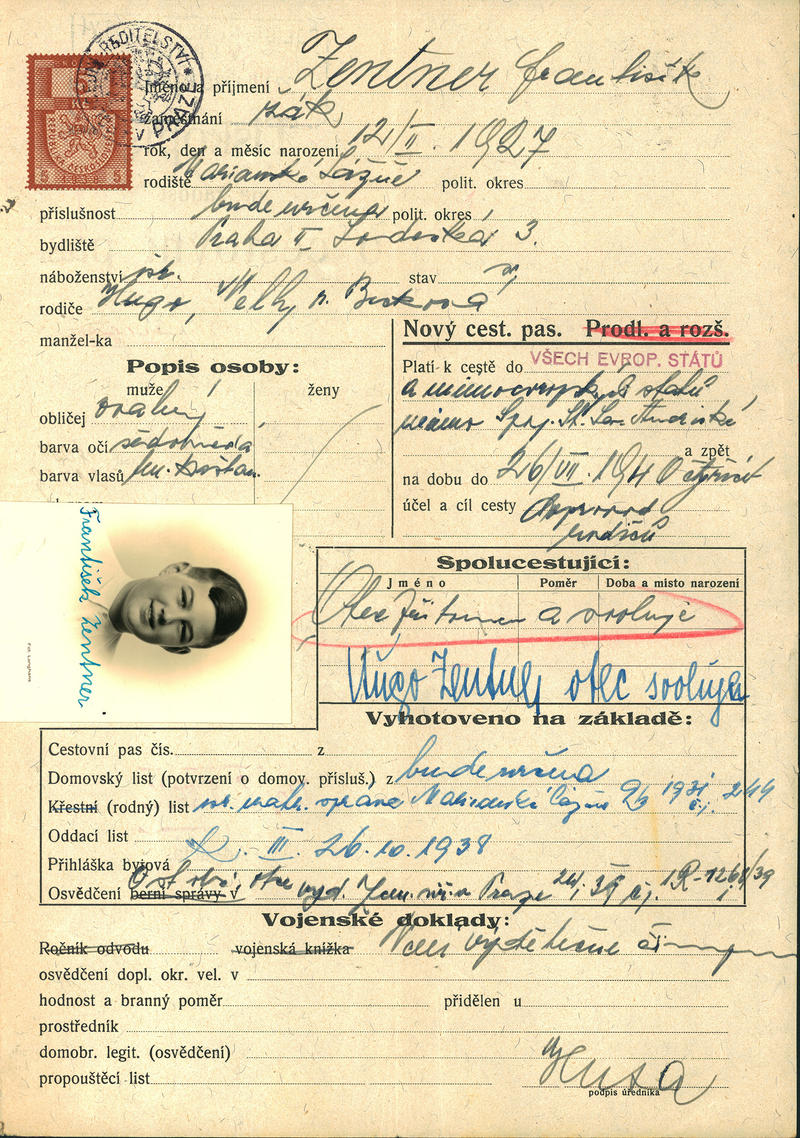 ŘEDITELSTVÍ
V PRAZE
5 5
Jméno a příjmení Zentner František
zaměstnání žák
rok, den a měsíc narození 12/II. 1927
rodiště Marianské Lázně polit. okres
příslušnost bude určena polit. okres
bydliště Praha II Lodecká 3.
náboženství stav
rodiče Hugo, Nelly, r.
manžel-ka
Nový cest. pas. Prodl. a rozš.
Popis osoby:
muže ženy
Platí k cestě do VŠECH EVROP. STÁTŮ
a mimoevropských států
obličej oválný
mimo
barva očí šedohnědá
a zpět
barva vlasů
na dobu do 26/VII. 1940
účel a cíl cesty doprovod
rodičů
František Zentner
Fot. Langhans
Spolucestující:
Jméno Poměr Doba a místo narození
Otec přítomen a svoluje
Hugo Zentner otec svoluje
Vyhotoveno na základě:
Cestovní pas čís. z
Domovský list (potvrzení o domov. přísluš.) z bude určena
Křestní (rodný) list žid. matr. správa Marianské Lázně 1931 čj. 244
Oddací list
Přihláška bytová Z. III. 26.10.1938
Osvědčení berní správy v otce vyd. v Praze čj. 1R-1268/39
Vojenské doklady:
Ročník odvodu vojenská knížka Není
osvědčení dopl. okr. vel. v
hodnost a branný poměr přidělen u
prostředník
domobr. legit. (osvědčení)
propouštěcí list
Husa
podpis úředníka